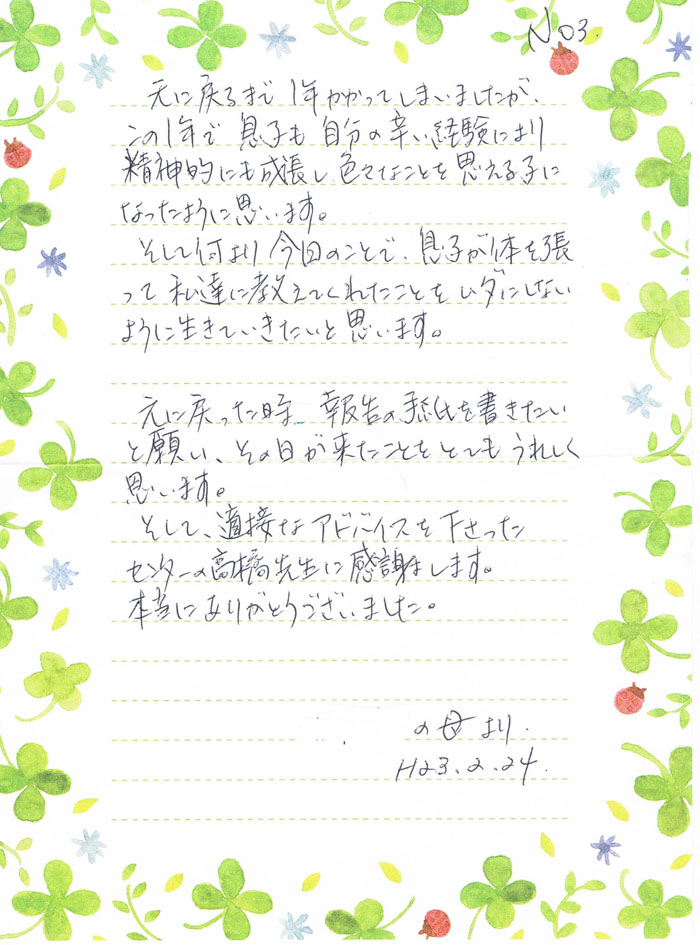 No3.
元に戻るまで 1年かかってしまいましたが、
この1年で 息子も 自分の辛い経験により
精神的にも成長し 色々なことを思える子に
なったように思います。
そして何より 今回のことで、息子が体を張
って 私達に教えてくれたことを ムダにしない
ように生きていきたいと思います。
元に戻った時 報告の手紙を書きたい
と願い、その日が来たことをとても うれしく
思います。
そして、適接な アドバイスを 下さった
センターの高橋先生に感謝します。
本当にありがとうございました。
の母より.
H23.2.24.